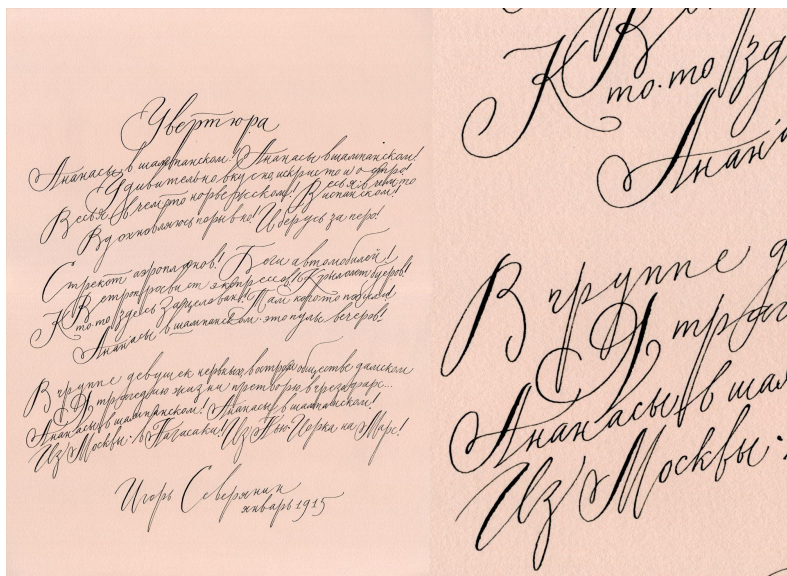 Увертюра
Ананасы в шампанском! Ананасы в шампанском!
Удивительно вкусно искристо и остро!
Весь я в чем то норвежском! Весь я в чем то испанском!
Вдохновляюсь порывно! И берусь за перо!
Стрекот аэропланов! Беги автомобилей!
Ветропросвист экспрессов! Крылолет буеров!
Кто-то здесь зацелован! Там кого-то побили!
Ананасы в шампанском - это пульс вечеров!
В группе девушек нервных в остром обществе дамском
Я трагедию жизни претворю в грезофарс...
Ананасы в шампанском! Ананасы в шампанском!
Из Москвы - в Нагасаки! Из Нью-Йорка на Марс!
Игорь Северянин
январь 1915
Кто-то зд
Анан
В группе д
Я траг
Ананасы в шам
Из Москвы -